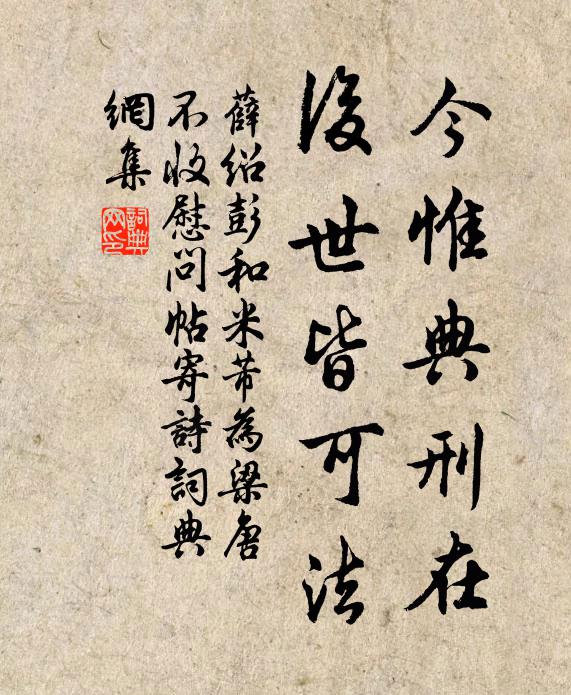 今惟典刑在
後世皆可法
薛紹彭和米芾為梁唐
不收慰問帖寄詩詞典
網集
詞典網印